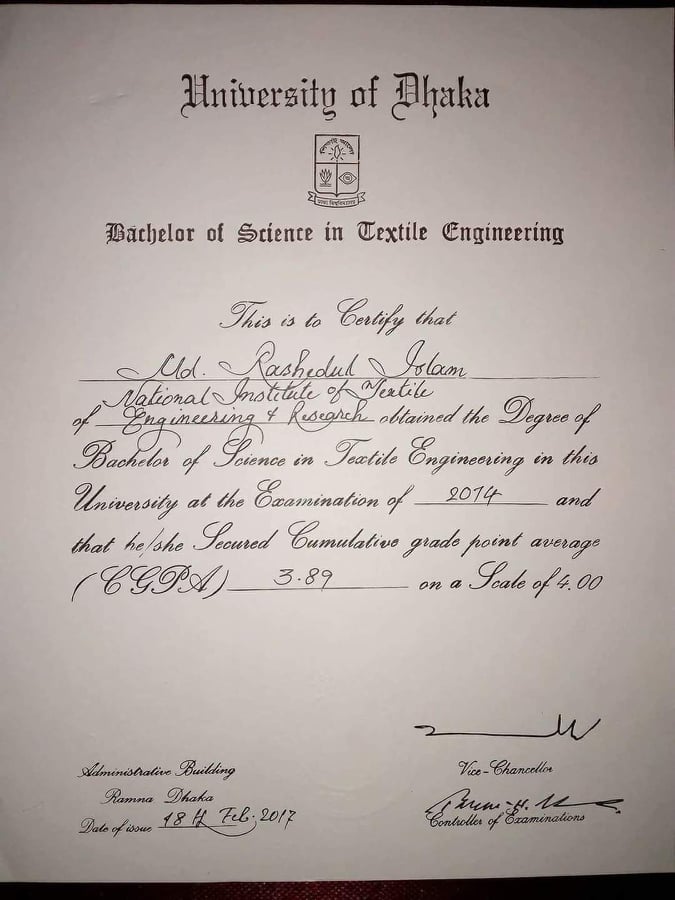 University of Dhaka
Bachelor of Science in Textile Engineering
This is to Certify that
Md. Rashedul Islam
National Institute of Textile
of Engineering & Research obtained the Degree of
Bachelor of Science in Textile Engineering in this
University at the Examination of 2014 and
that he/she Secured Cumulative grade point average
(CGPA) 3.89 on a Scale of 4.00
Administrative Building
Ramna Dhaka
Date of issue 18th Feb. 2017
Vice-Chancellor
Controller of Examinations